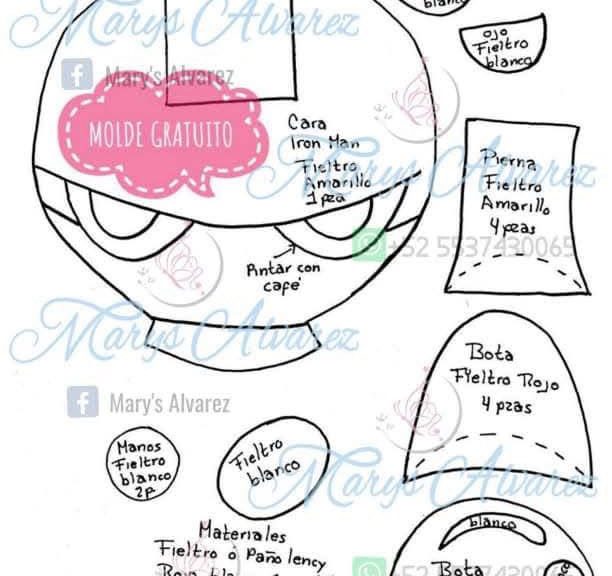 Marys Alvarez
blanco
ojo
Fieltro
blanco
Mary's Alvarez
MOLDE GRATUITO
Cara
Iron Man
Fieltro
Amarillo
1 pza
Marys Alvarez
Pierna
Fieltro
Amarillo
4 pzas
+52 5537430065
Pintar con
café
Marys Alvarez
Bota
Fieltro Rojo
4 pzas
Mary's Alvarez
Manos
Fieltro
blanco
2p
Fieltro
blanco
Marys Alvarez
Materiales
Fieltro ò Paño lency
blanco
Bota